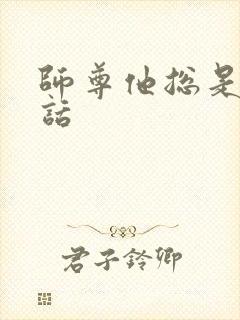 師尊他總是
話
君子鈴卿